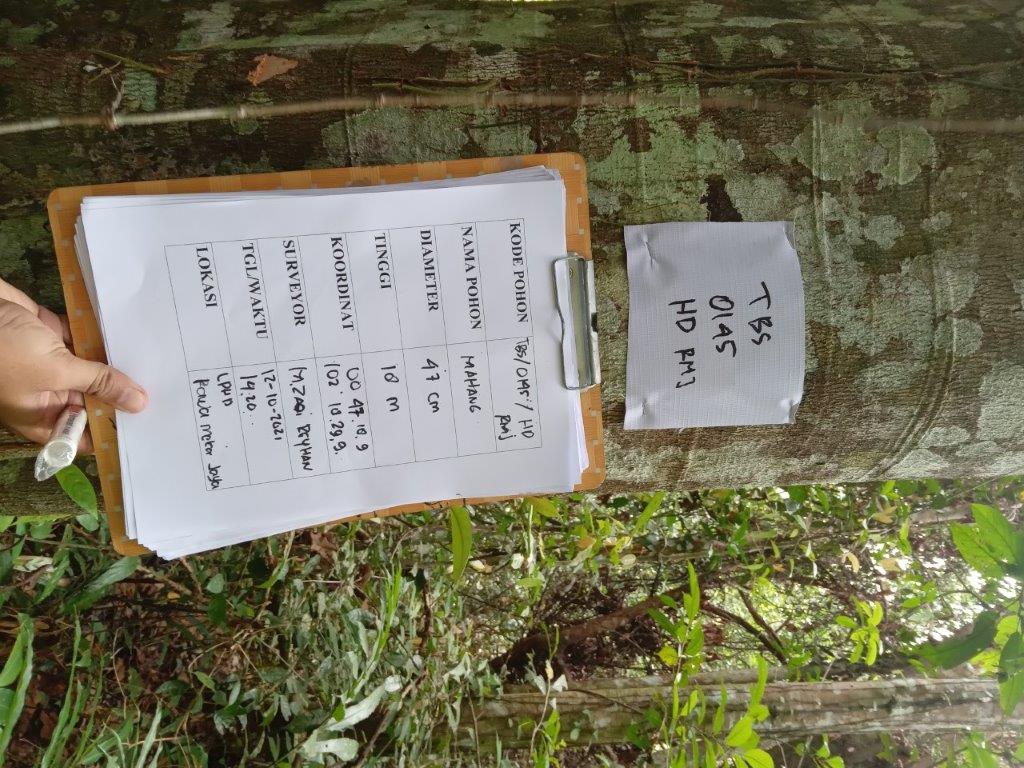 TBS
0145
HD RMJ
KODE POHON TBS/0145/HD
RMJ
NAMA POHON MAHANG
DIAMETER 47 cm
TINGGI 18 m
KOORDINAT 00 47.18.9
102° 18.29,9.
SURVEYOR M.ZAQI REYHAN
TGL/WAKTU 12-10-2021
14.20
LOKASI LPHD
Rawa mekar Jaya